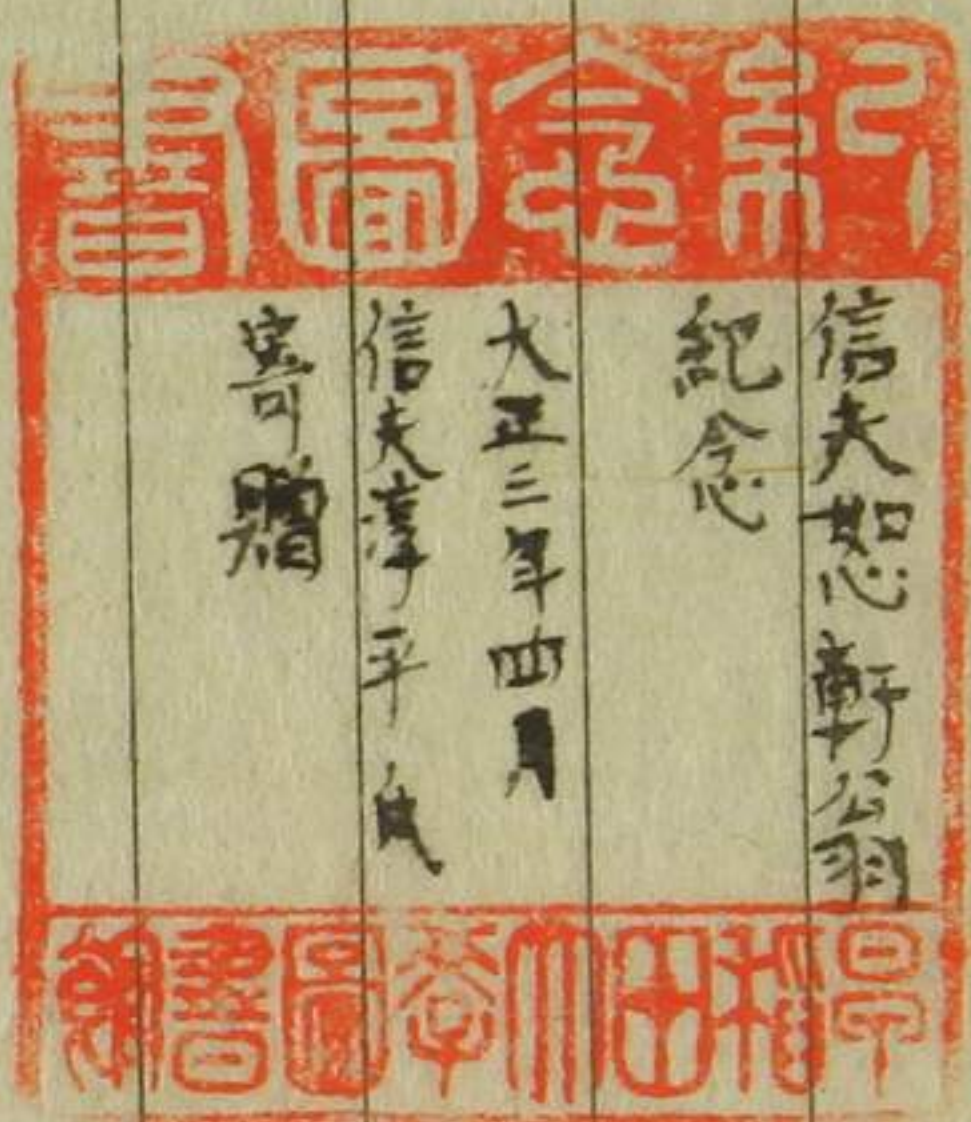 紀念圖書
信夫恕軒翁
紀念
大正三年四月
信夫淳平氏
寄贈
早稻田大學圖書館